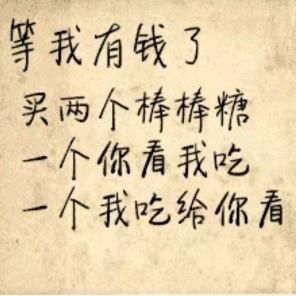 等我有钱了
买两个棒棒糖
一个你看我吃
一个我吃给你看